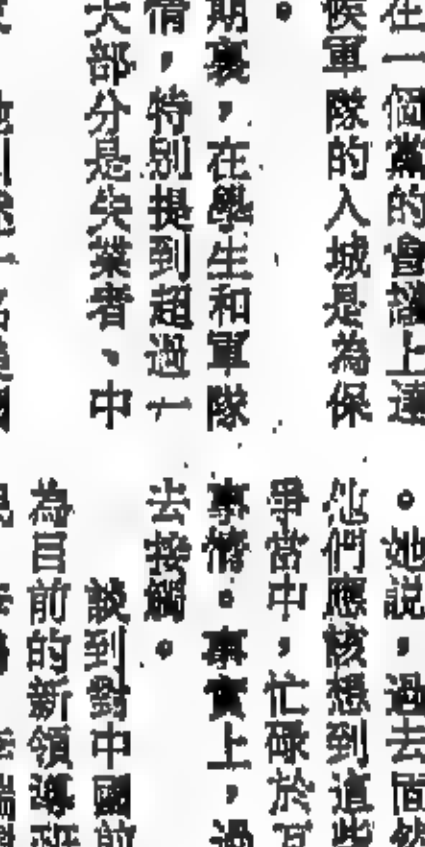 在一個黨的會議上達
候軍隊的入城是為保
。
期裏，在學生和軍隊
情，特別提到超過一
大部分是失業者、中
。她説，過去
他們應該想到這些
爭當中，忙碌於
事情。事實上，過
去接觸。
談到對中國前
為目前的新領導班